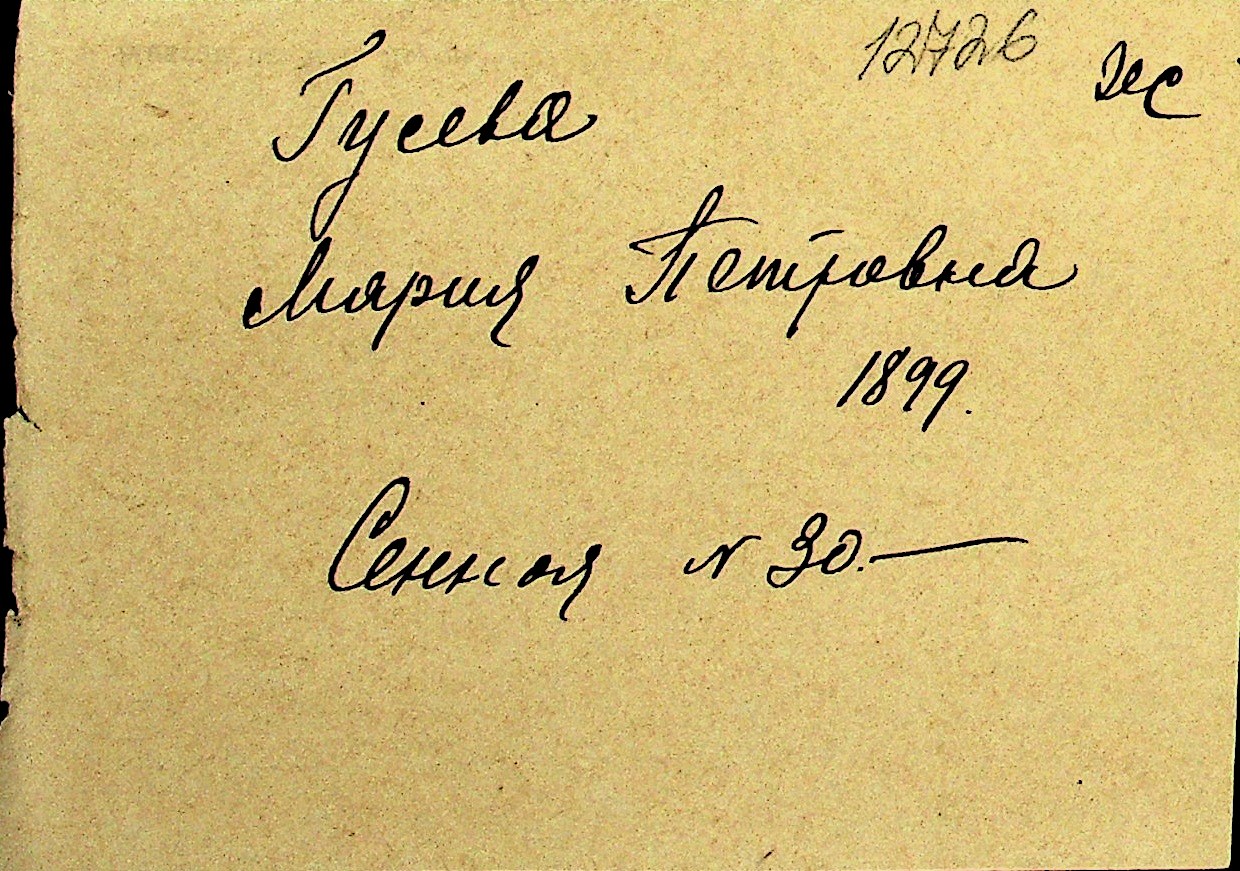 12726 ж
Гусева
Мария Петровна
1899.
Сенная N 30.—